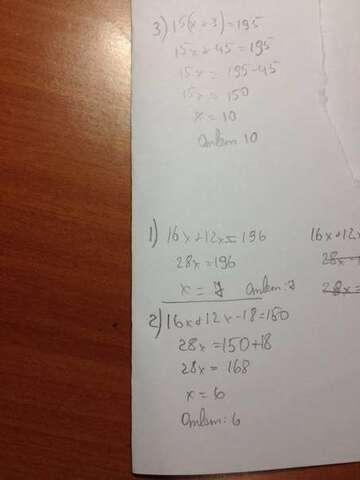 3) 15(x+3)=195
15x+45=195
15x = 195-45
15x = 150
x = 10
10
1) 16x+12x=196
28x=196
x = 7
16x+12x
28x
28x=
2) 16x+12x-18=150
28x=150+18
28x = 168
x = 6
: 6